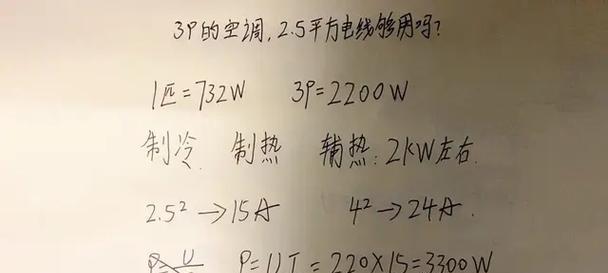 3P的空调,2.5平方电线够用吗?
1匹=732W 3P=2200W
制冷 制热 辅热:2KW左右.
2.5² →15A 4² →24A.
P=UI=220×15=3300W